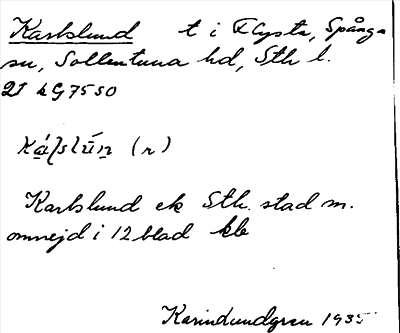 Karlslund t i Flysta, Spånga
sn, Sollentuna hd, Sth l.
2J kG7550
(r)
Karlslund ek Sth. stad m.
omnejd i 12 blad kb
Karin Lundgren 1935